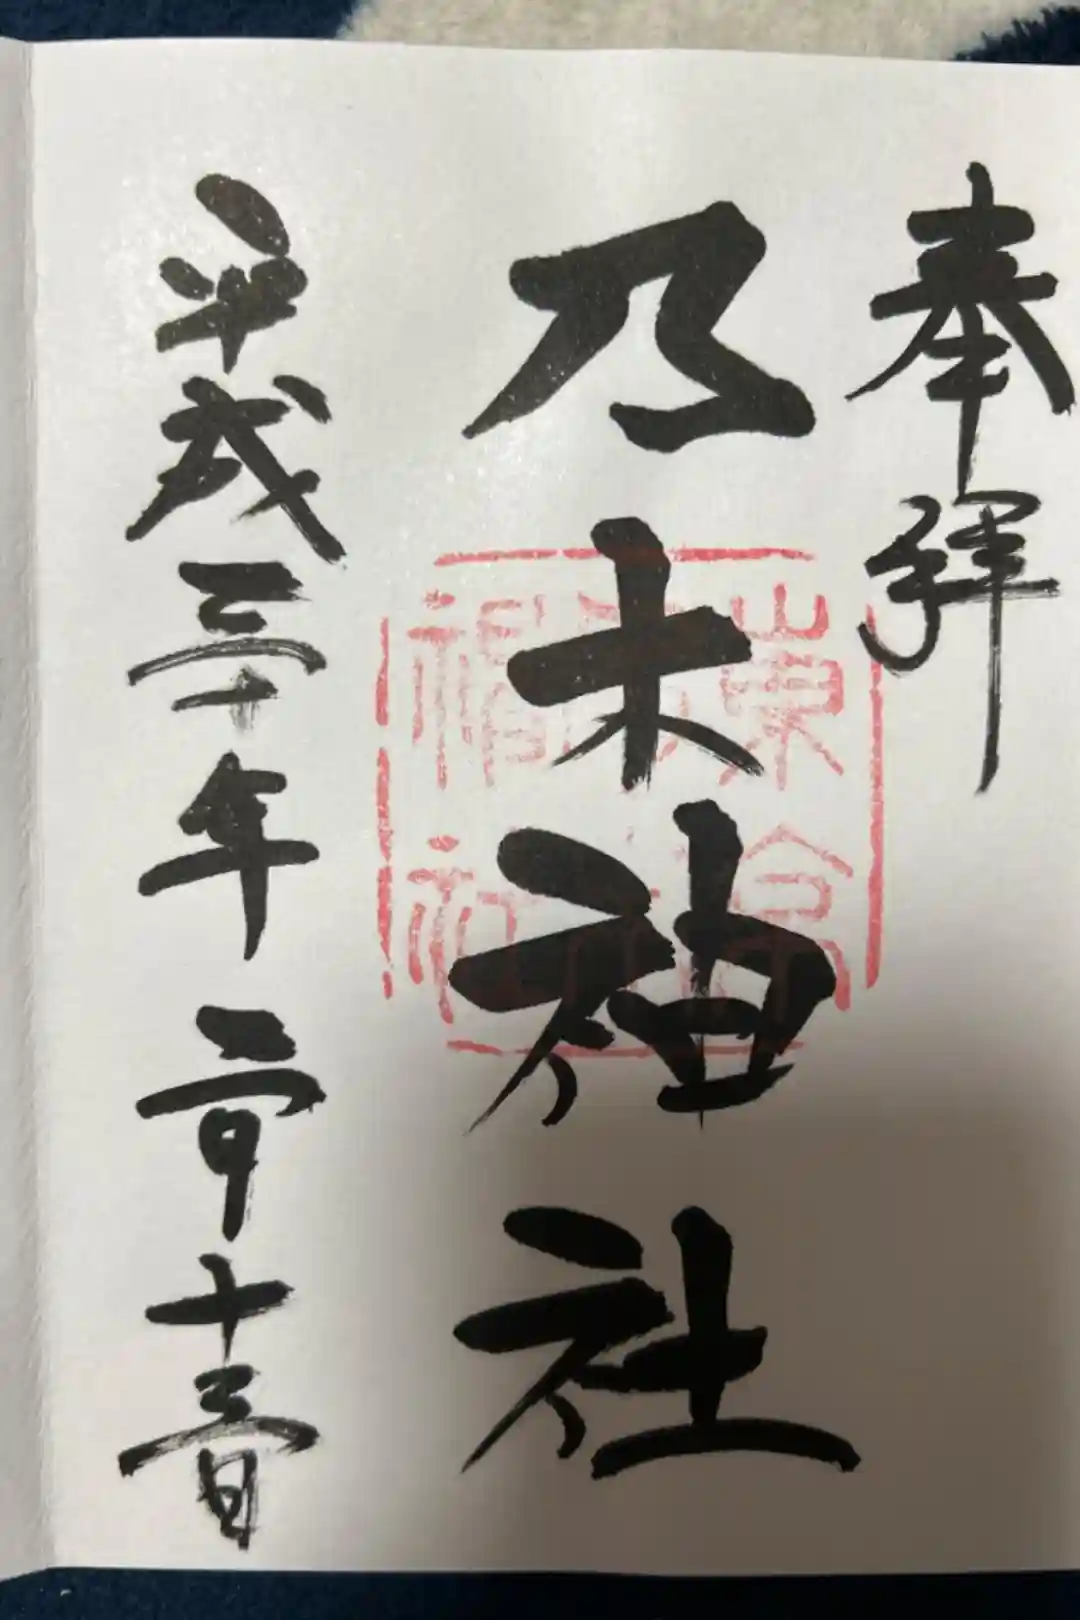 奉拝
乃木神社
平成三十年二月十三日
東京